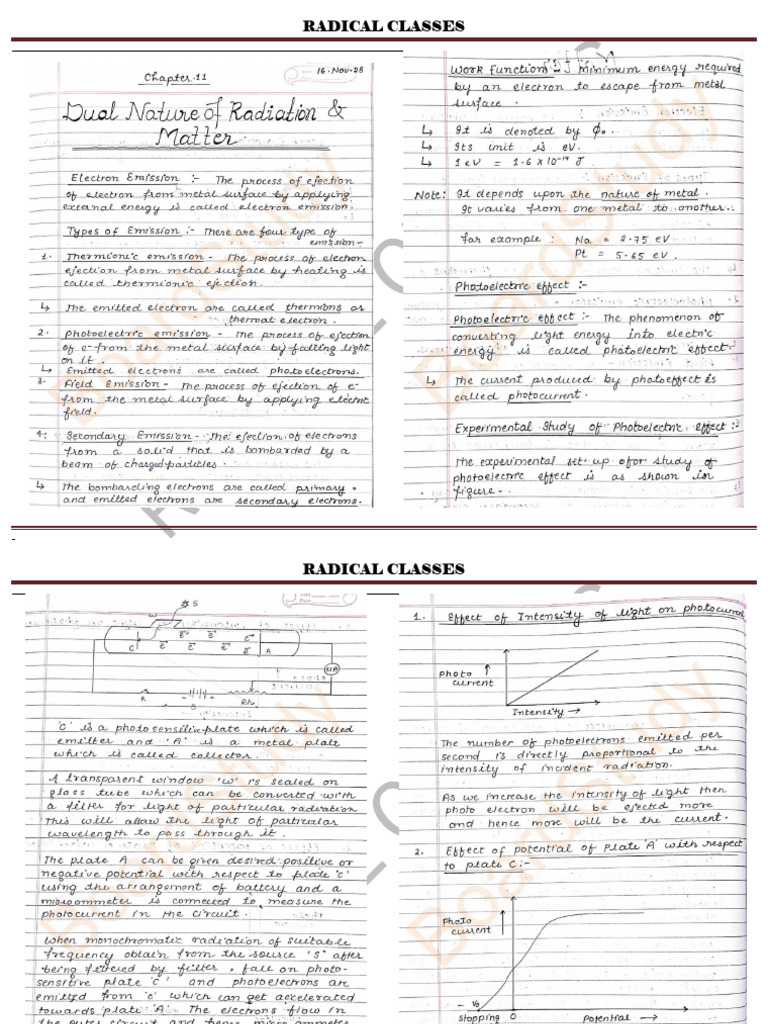 RADICAL CLASSES
16-Nov-23
Chapter-11
Dual Nature of Radiation &
Matter
Electron Emission :- The process of ejection
of electron from metal surface by applying
external energy is called electron emission.
Types of Emission :- There are four type of
emission-
1. Thermionic emission - The process of electron
ejection from metal surface by heating is
called thermionic ejection.
↳ The emitted electron are called thermions or
thermal electron.
2. Photoelectric emission - The process of ejection
of e- from the metal surface by falling light
on it.
↳ Emitted electrons are called photoelectrons.
3. Field Emission - The process of ejection of e-
from the metal surface by applying electric
field.
4. Secondary Emission - The ejection of electrons
from a solid that is bombarded by a
beam of charged partides.
↳ The bombarding electrons are called primary
and emitted electrons are secondary electrons.
Work Function :- Minimum energy required
by an electron to escape from metal
surface.
↳ It is denoted by ϕ₀
↳ Its unit is eV.
↳ 1 eV = 1.6 x 10⁻¹⁹ J
Note: It depends upon the nature of metal.
It varies from one metal to another.
for example : Na = 2.75 eV
Pt = 5.65 eV.
Photoelectric effect :-
Photoelectric effect :- The phenomenon of
converting light energy into electric
energy is called photoelectric effect.
↳ The current produced by photoeffect is
called photocurrent.
Experimental Study of Photoelectric Effect :-
The experimental set up ofor study of
photoelectric effect is as shown in
figure.
BoardStudy
BoardStudy
RADICAL CLASSES
S
W
C
e- e- e- e-
e- e- e- e-
A
μA
R
B
Rh
'C' is a photosensitive plate which is called
emitter and 'A' is a metal plate
which is called collector.
A transparent window 'W' is sealed on
glass tube which can be converted with
a filter for light of particular radiation
This will allow the light of particular
wavelength to pass through it.
The plate A can be given desired positive or
negative potential with respect to plate 'C'
using the arrangement of battery and a
microammeter is connected to measure the
photocurrent in the circuit.
When monochromatic radiation of suitable
frequency obtain from the source 'S' after
being filtered by filter, fall on photo-
sensitive plate 'C' and photoelectrons are
emitted from 'C' which can get accelerated
towards plate 'A'. The electrons flow in
the outer circuit and hence micro ammeter
1. Effect of Intensity of light on photocurrent
Photo
current
Intensity →
The number of photoelectrons emitted per
second is directly proportional to the
intensity of incident radiation.
As we increase the intensity of light then
photo electron will be ejected more
and hence more will be the current.
2. Effect of potential of Plate 'A' with respect
to plate C:-
Photo
current
- V₀ 0
Stopping Potential →
BoardStudy
BoardStudy